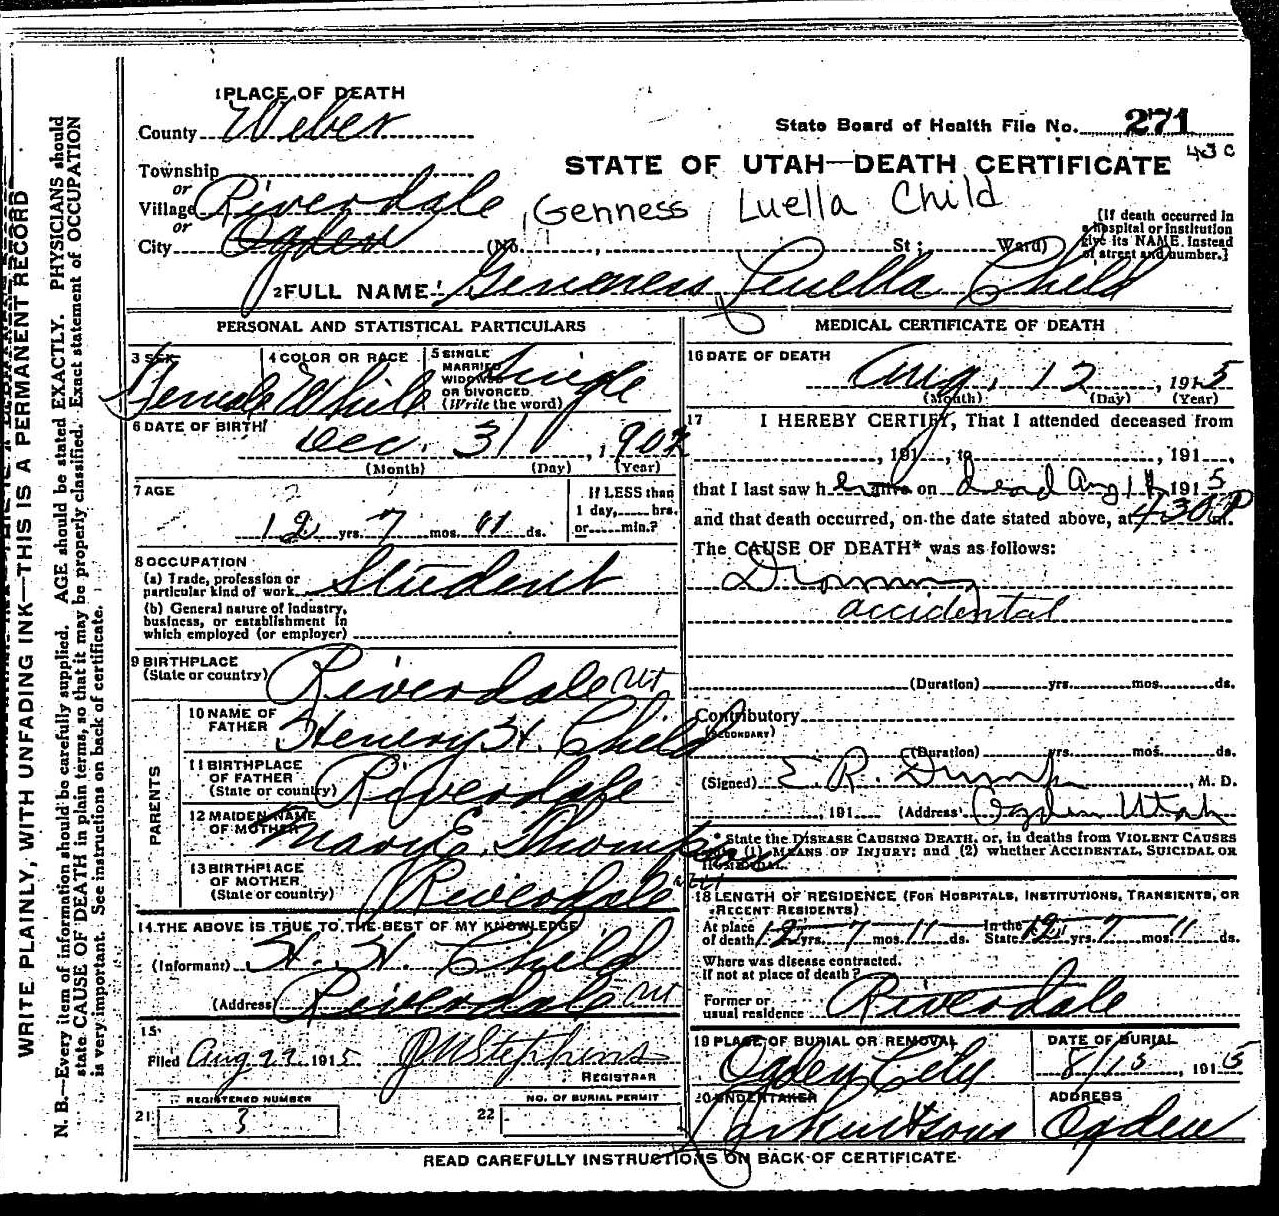 1 PLACE OF DEATH
County Weber
State Board of Health File No. 271
43 C
Township
or
Village Riverdale
or
City Ogden
STATE OF UTAH—DEATH CERTIFICATE
Genness Luella Child
(No. , St ; Ward)
[If death occurred in a hospital or institution give its NAME instead of street and number.]
2 FULL NAME Genness Luella Child
PERSONAL AND STATISTICAL PARTICULARS
3 SEX Female
4 COLOR OR RACE White
5 SINGLE MARRIED WIDOWED OR DIVORCED (Write the word) Single
6 DATE OF BIRTH
Dec. 31, 1902
(Month) (Day) (Year)
7 AGE
12 yrs. 7 mos. 11 ds.
If LESS than 1 day, hrs. or min.?
8 OCCUPATION
(a) Trade, profession or particular kind of work Student
(b) General nature of industry, business, or establishment in which employed (or employer)
9 BIRTHPLACE
(State or country) Riverdale Ut
PARENTS
10 NAME OF FATHER Henery H. Child
11 BIRTHPLACE OF FATHER (State or country) Riverdale
12 MAIDEN NAME OF MOTHER Mary E.
13 BIRTHPLACE OF MOTHER (State or country) Riverdale Ut
14 THE ABOVE IS TRUE TO THE BEST OF MY KNOWLEDGE
(Informant) H. H. Child
(Address) Riverdale Ut
15
Filed Aug 22 1915 J M Stephens
REGISTRAR
21 REGISTERED NUMBER
3
22 NO. OF BURIAL PERMIT
MEDICAL CERTIFICATE OF DEATH
16 DATE OF DEATH
Aug. 12, 1915
(Month) (Day) (Year)
17 I HEREBY CERTIFY, That I attended deceased from
, 191 , to , 191 ,
that I last saw her alive on dead Aug 1 1915
and that death occurred, on the date stated above, at 430 P m.
The CAUSE OF DEATH* was as follows:
Drowning
accidental
(Duration) yrs. mos. ds.
Contributory
(SECONDARY)
(Duration) yrs. mos. ds.
(Signed) E. R. M. D.
, 191 (Address) Ogden Utah
* State the DISEASE CAUSING DEATH, or, in deaths from VIOLENT CAUSES
state (1) MEANS OF INJURY; and (2) whether ACCIDENTAL, SUICIDAL OR
HOMICIDAL.
18 LENGTH OF RESIDENCE (FOR HOSPITALS, INSTITUTIONS, TRANSIENTS, OR RECENT RESIDENTS)
At place of death 12 yrs. 7 mos. 11 ds. In the State 12 yrs. 7 mos. 11 ds.
Where was disease contracted, if not at place of death?
Former or usual residence Riverdale
19 PLACE OF BURIAL OR REMOVAL
Ogden City
DATE OF BURIAL
8/15, 1915
20 UNDERTAKER
& sons
ADDRESS
Ogden
READ CAREFULLY INSTRUCTIONS ON BACK OF CERTIFICATE
WRITE PLAINLY, WITH UNFADING INK—THIS IS A PERMANENT RECORD
N. B.—Every item of information should be carefully supplied. AGE should be stated EXACTLY. PHYSICIANS should
state CAUSE OF DEATH in plain terms, so that it may be properly classified. Exact statement of OCCUPATION
is very important. See instructions on back of certificate.